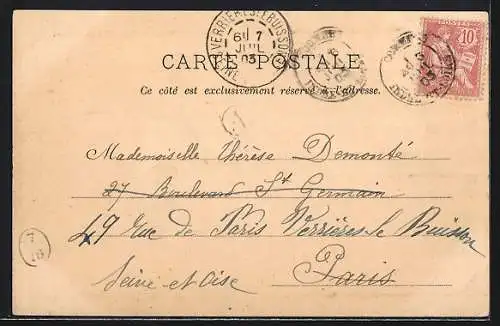 VERRIÈRES-LE-BUISSON
6E 7
JUIL
03
10
POSTES
CARTE POSTALE
Ce côté est exclusivement réservé à l'adresse.
Mademoiselle Thérèse Demonté
27 Boulevard St Germain
49 Rue de Paris Verrières le Buisson
Seine et Oise Paris